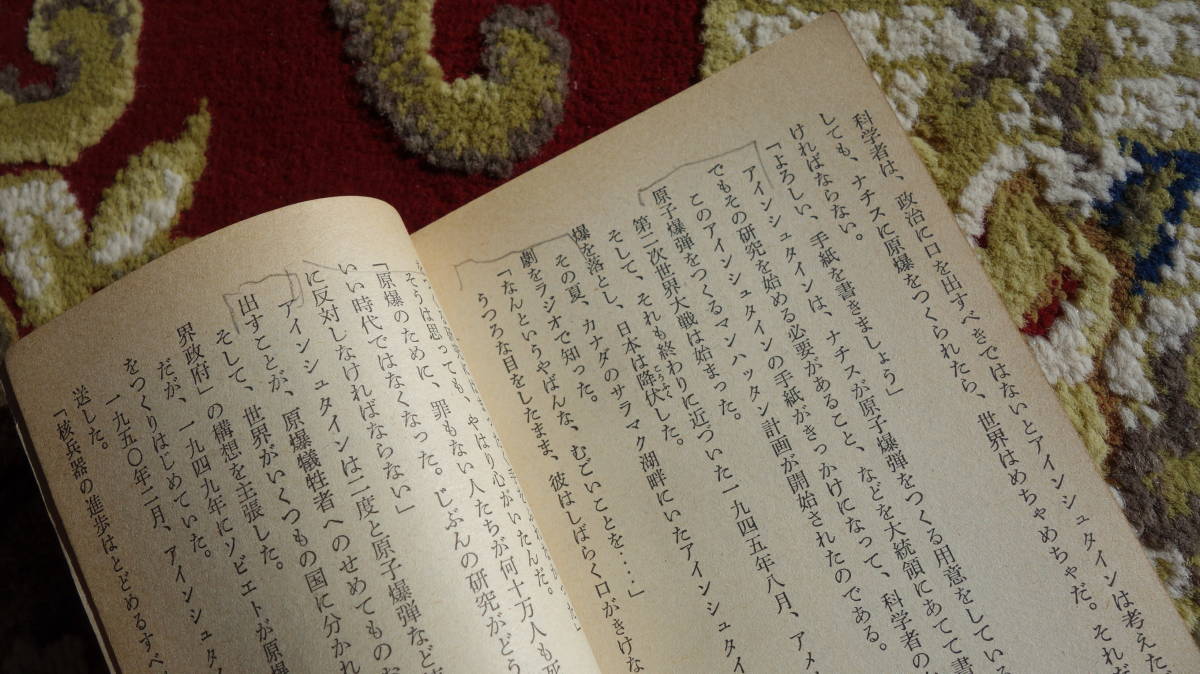 科学者は、政治に口を出すべきではないとアインシュタインは考えた。
しても、ナチスに原爆をつくられたら、世界はめちゃめちゃだ。それだ
ければならない。
「よろしい、手紙を書きましょう」
アインシュタインは、ナチスが原子爆弾をつくる用意をしている
でもその研究を始める必要があること、などを大統領にあてて書
このアインシュタインの手紙がきっかけになって、科学者の
原子爆弾をつくるマンハッタン計画が開始されたのである。
第二次世界大戦は始まった。
そして、それも終わりに近づいた一九四五年八月、アメ
爆を落とし、日本は降伏した。
こうふく
その夏、カナダのサラマク湖畔にいたアインシュタイ
劇をラジオで知った。
「なんというやばんな、むごいことを‥‥」
うつろな目をしたまま、彼はしばらく口がきけな
そうは思っても、やはり心がいたんだ。
「原爆のために、罪もない人たちが何十万人も死
いい時代ではなくなった。じぶんの研究がどう
に反対しなければならない」
アインシュタインは二度と原子爆弾など
出すことが、原爆犠牲者へのせめてものお
そして、世界がいくつもの国に分かれ
界政府」の構想を主張した。
だが、一九四九年にソビエトが原爆
をつくりはじめていた。
一九五〇年二月、アインシュタ
送した。
「核兵器の進歩はとどめるすべ